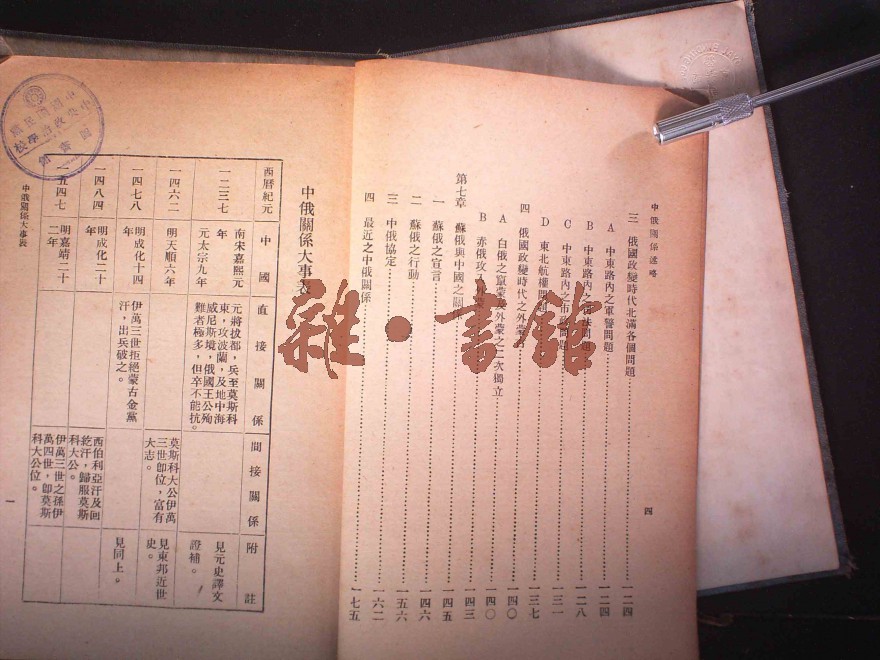 中俄關係述略
三 俄國政變時代北滿各個問題 一二四
A 中東路內之軍警問題 一二四
B 中東路內之司法問題 一二八
C 中東路內之市政問題 一三一
D 東北航權問題 一三七
四 俄國政變時代之外蒙 一四〇
A 白俄之竄蒙及外蒙之二次獨立 一四〇
B 赤俄攻入外蒙 一四三
第七章 蘇俄與中國之關係 一四五
一 蘇俄之宣言 一四五
二 蘇俄之行動 一四六
三 中俄協定 一五六
四 最近之中俄關係 一七五
四
雜·書館
中俄關係大事表
西曆紀元 中國 直接關係 間接關係 附註
一二三七
南宋嘉熙元年
元太宗九年
元將拔都,兵至莫斯科
東,攻波蘭,及地中海
威尼斯境,俄國王公殉
難者極多,但卒不能抗。
見元史譯文
證補。
一四六二
明天順六年
莫斯科大公伊萬
三世卽位,富有
大志。
見東邦近世
史。
一四七八
明成化十四
年
伊萬三世拒絕蒙古金黨
汗,出兵破之。
見同上。
一四八四
明成化二十
年
西伯利亞汗及回
紇汗,歸服莫斯
科大公。
一五四七
明嘉靖二十
二年
伊萬三世之孫伊
萬四世,卽莫斯
科大公位。
中俄關係大事表
一